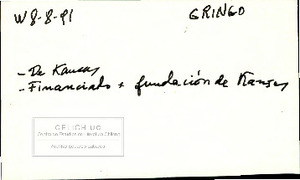 W 8-8-91 GRINGO
- De Kansas
- Financiado x fundación de Kansas
CELICH UC